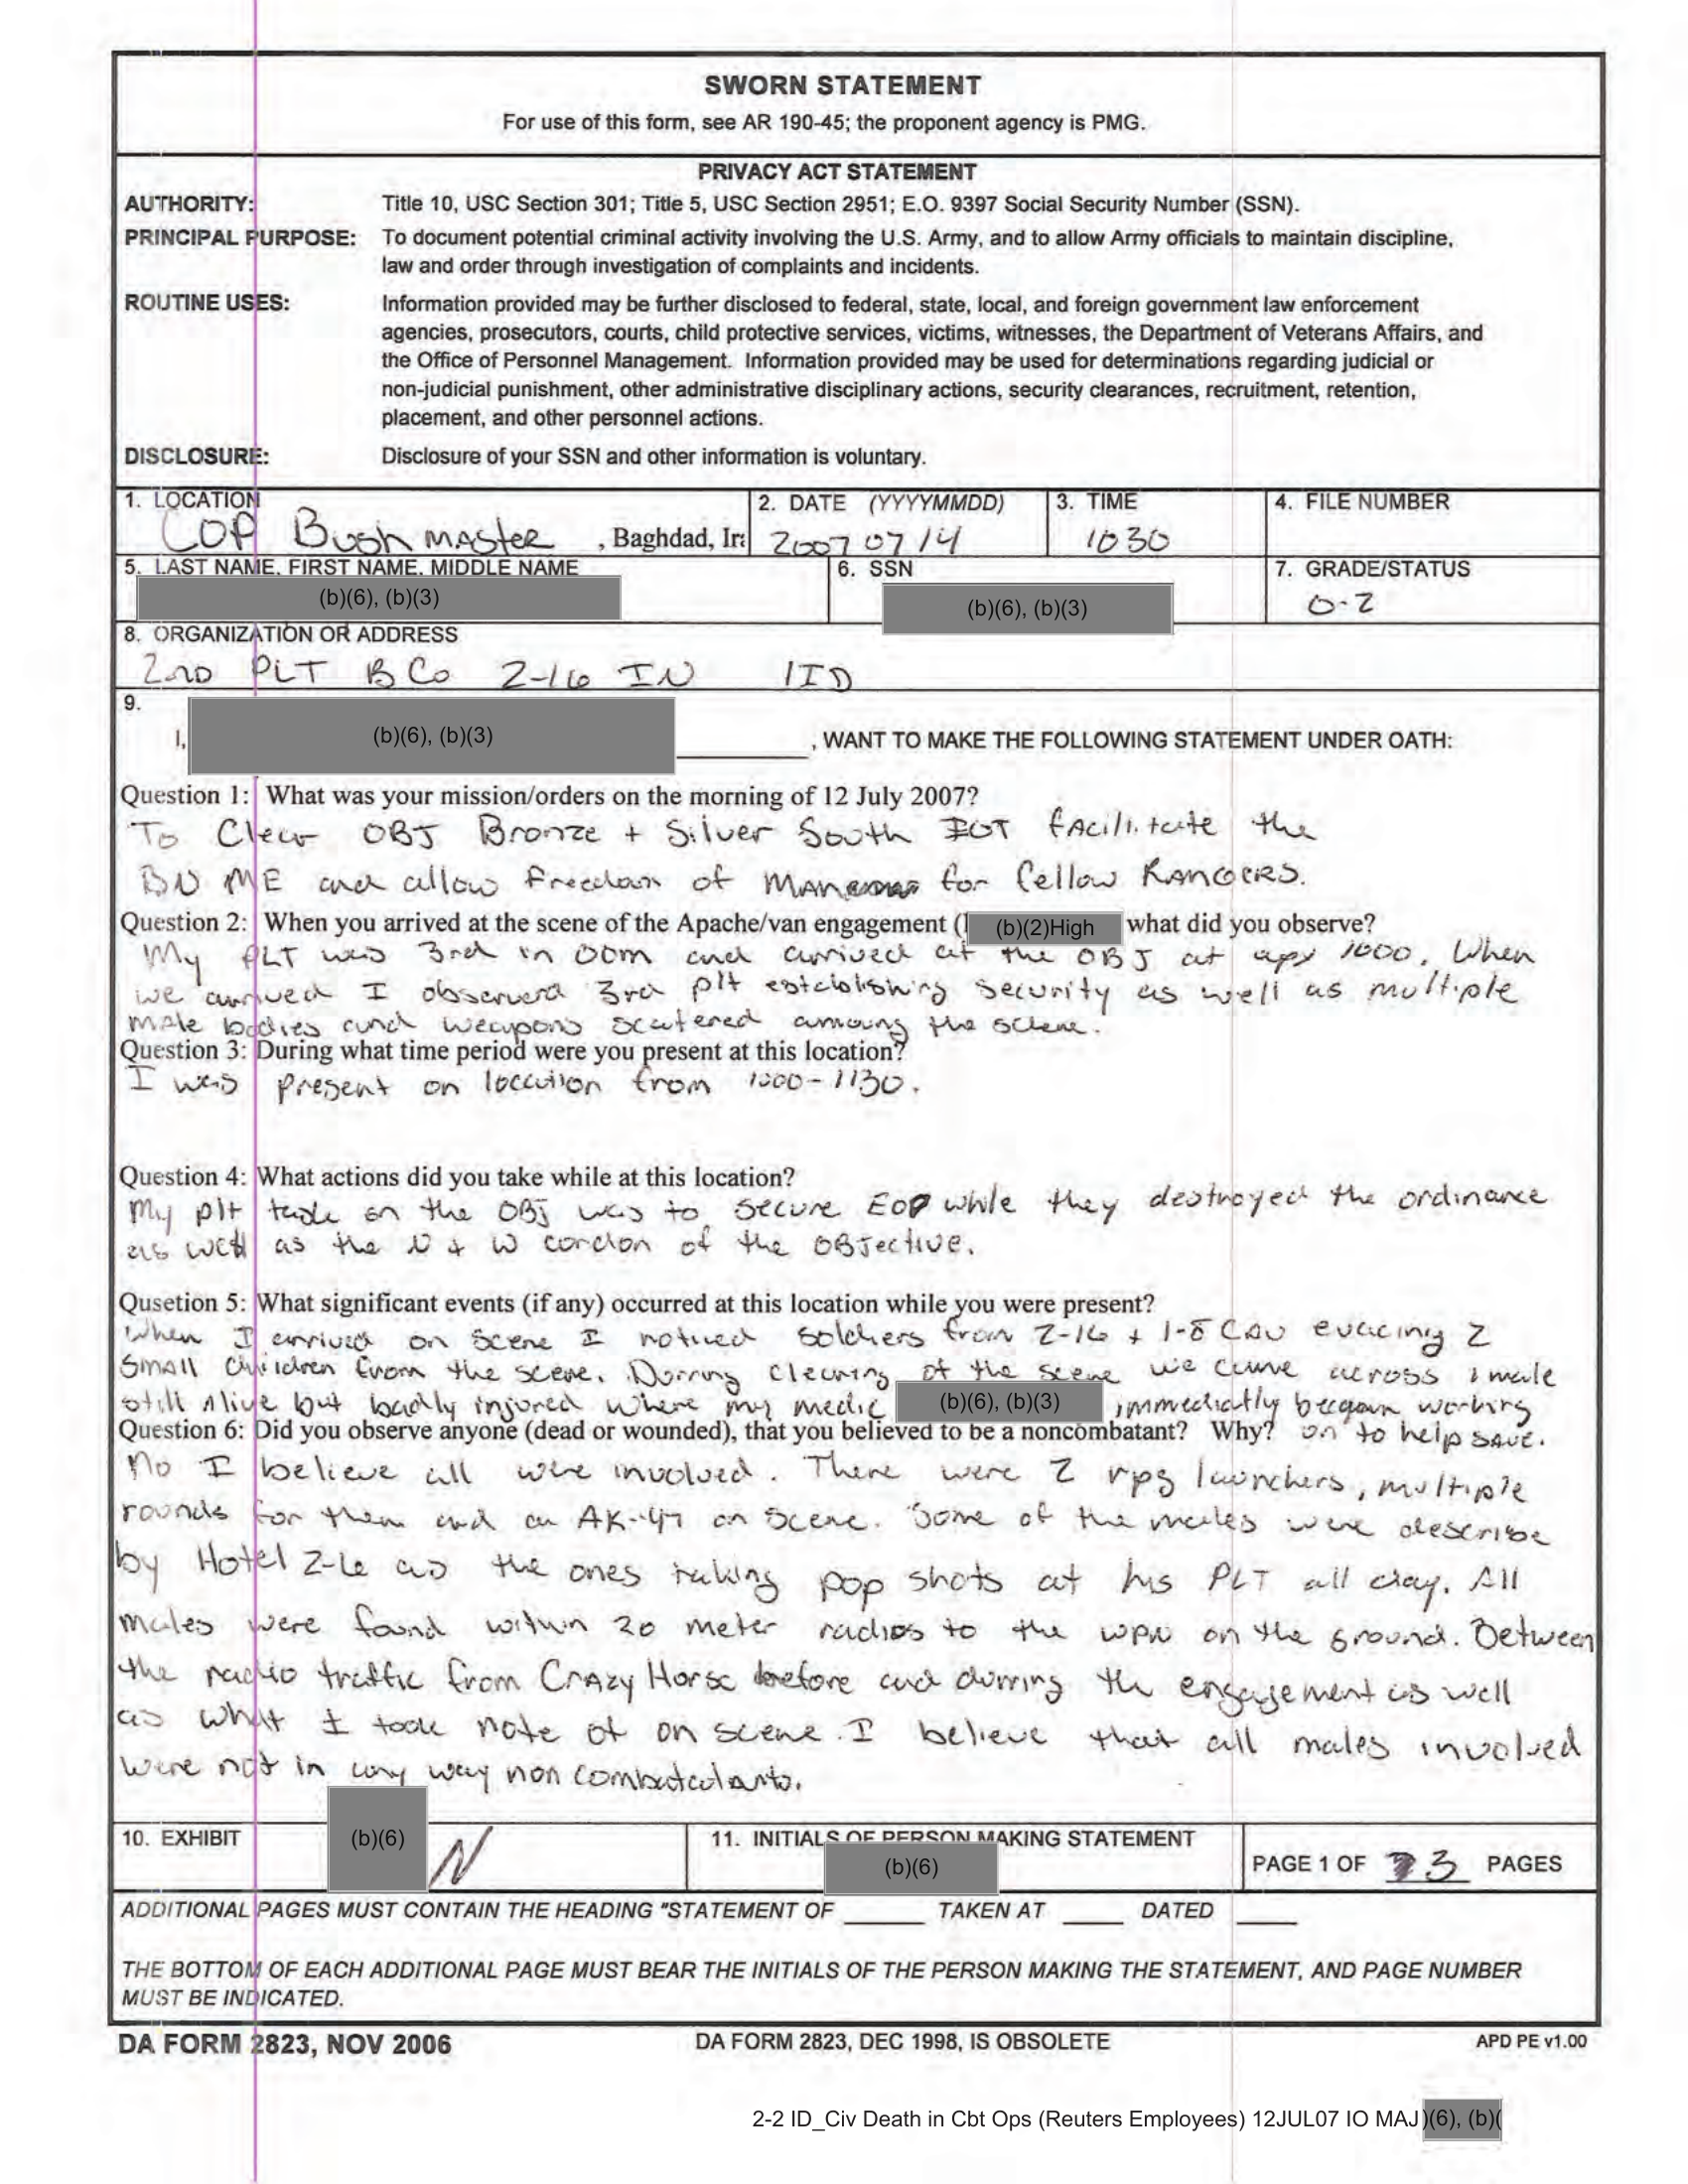 SWORN STATEMENT
For use of this form, see AR 190-45; the proponent agency is PMG.
PRIVACY ACT STATEMENT
AUTHORITY: Title 10, USC Section 301; Title 5, USC Section 2951; E.O. 9397 Social Security Number (SSN).
PRINCIPAL PURPOSE: To document potential criminal activity involving the U.S. Army, and to allow Army officials to maintain discipline,
law and order through investigation of complaints and incidents.
ROUTINE USES: Information provided may be further disclosed to federal, state, local, and foreign government law enforcement
agencies, prosecutors, courts, child protective services, victims, witnesses, the Department of Veterans Affairs, and
the Office of Personnel Management. Information provided may be used for determinations regarding judicial or
non-judicial punishment, other administrative disciplinary actions, security clearances, recruitment, retention,
placement, and other personnel actions.
DISCLOSURE: Disclosure of your SSN and other information is voluntary.
1. LOCATION 2. DATE (YYYYMMDD) 3. TIME 4. FILE NUMBER
COP Bushmaster , Baghdad, Ira 20070714 1030
5. LAST NAME, FIRST NAME, MIDDLE NAME 6. SSN 7. GRADE/STATUS
(b)(6), (b)(3) (b)(6), (b)(3) O-2
8. ORGANIZATION OR ADDRESS
2nd PLT B Co 2-16 IN 1ID
9.
I, (b)(6), (b)(3) , WANT TO MAKE THE FOLLOWING STATEMENT UNDER OATH:
Question 1: What was your mission/orders on the morning of 12 July 2007?
To Clear OBJ Bronze + Silver South IOT facilitate the
BN ME and allow freedom of for fellow RANGERS.
Question 2: When you arrived at the scene of the Apache/van engagement ( (b)(2)High what did you observe?
My PLT was 3rd in OOM and arrived at the OBJ at apx 1000. When
we arrived I observerd 3rd plt establishing security as well as multiple
male bodies and weapons scatered amoung the scene.
Question 3: During what time period were you present at this location?
I was present on location from 1000-1130.
Question 4: What actions did you take while at this location?
My plt task on the OBJ was to secure EOD while they destroyed the ordinance
as well as the N + W cordon of the OBJective.
Qusetion 5: What significant events (if any) occurred at this location while you were present?
When I arrived on scene I noticed soldiers from 2-16 + 1-8 CAV evacing 2
small children from the scene. Durring clearing of the scene we came across 1 male
still alive but badly injured where my medic (b)(6), (b)(3) immediatly beegan working
Question 6: Did you observe anyone (dead or wounded), that you believed to be a noncombatant? Why? on to help save.
No I believe all were involved. There were 2 rpg launchers, multiple
rounds for them and an AK-47 on scene. Some of the males were describe
by Hotel 2-6 as the ones taking pop shots at his PLT all day. All
males were found within 20 meter radios to the wpn on the ground. Between
the radio traffic from Crazy Horse before and durring the engagement as well
as what I took note of on scene. I believe that all males involved
were not in any way non
10. EXHIBIT (b)(6) N 11. INITIALS OF PERSON MAKING STATEMENT (b)(6) PAGE 1 OF 3 PAGES
ADDITIONAL PAGES MUST CONTAIN THE HEADING "STATEMENT OF ______ TAKEN AT _____ DATED _____
THE BOTTOM OF EACH ADDITIONAL PAGE MUST BEAR THE INITIALS OF THE PERSON MAKING THE STATEMENT, AND PAGE NUMBER
MUST BE INDICATED.
DA FORM 2823, NOV 2006 DA FORM 2823, DEC 1998, IS OBSOLETE APD PE v1.00
2-2 ID_Civ Death in Cbt Ops (Reuters Employees) 12JUL07 IO MAJ )(6), (b)(